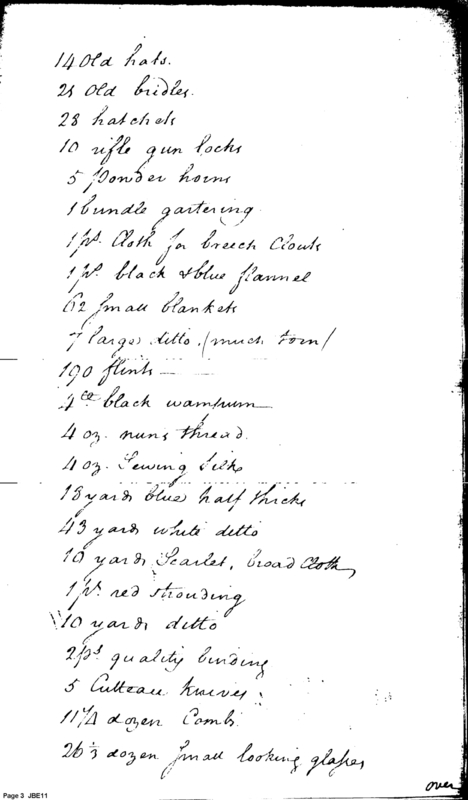 14 Old hats.
28 Old bridles.
28 hatchets
10 rifle gun locks
5 powder horns
1 bundle gartering
1 ps. Cloth for breech Clouts
1 ps. black & blue flannel
62 small blankets
7 larger ditto. (much torn)
190 flints
4 black wampum
4 oz. nuns thread
4 oz. Sewing Silk
18 yards blue half thicks
43 yards white ditto
10 yards Scarlet, broad Cloth,
1 ps. red strouding
10 yards ditto
2 ps. quality binding
5 Cutteau knives
11 1/4 dozen Combs
26 1/3 dozen small looking glasses
over
Page 3 JBE11